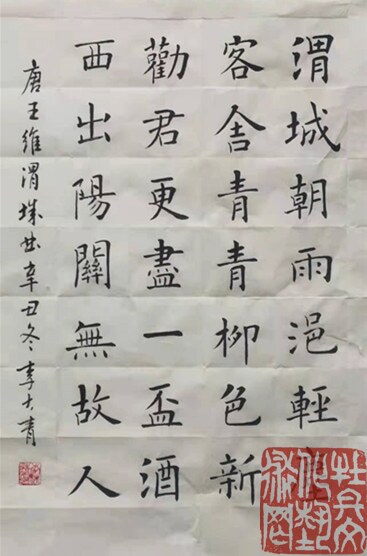 渭城朝雨浥輕
客舍青青柳色新
勸君更盡一盃酒
西出陽關無故人
唐王維渭城曲辛丑冬李大青